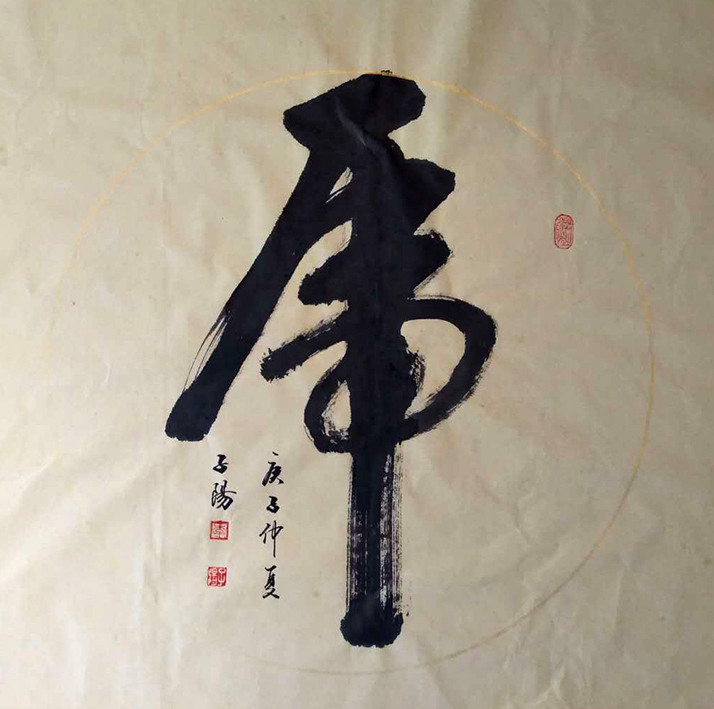 虎
庚子仲夏
子陽